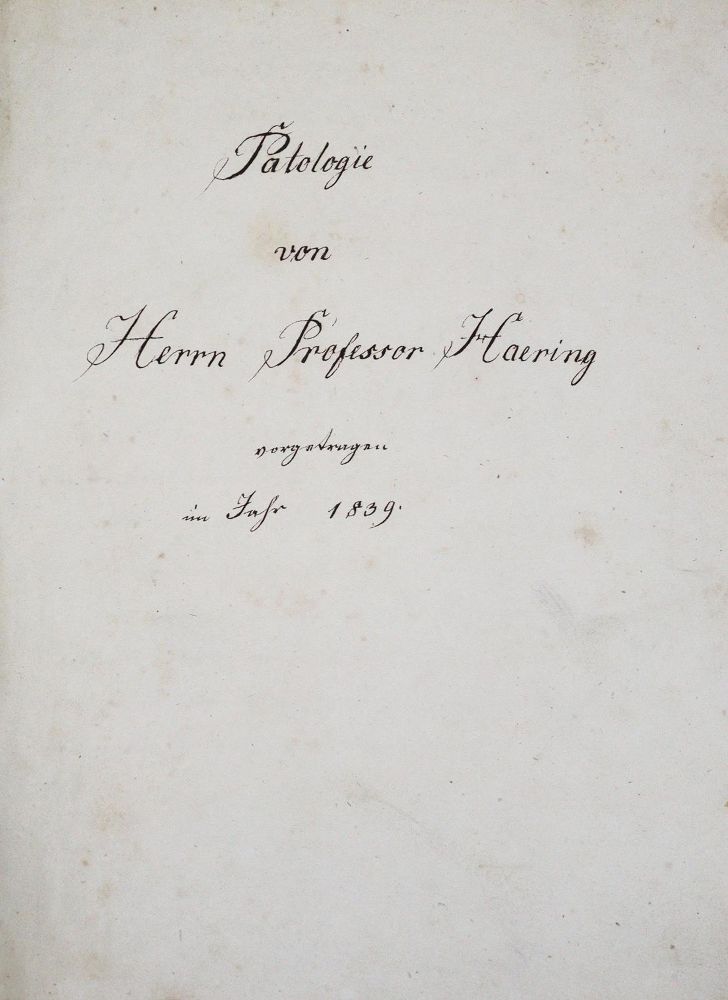 Patologie
von
Herrn Professor Haering
vorgetragen
im Jahr 1839.